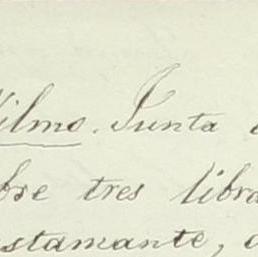 filmo. Junta
bre tres libra
stamante,